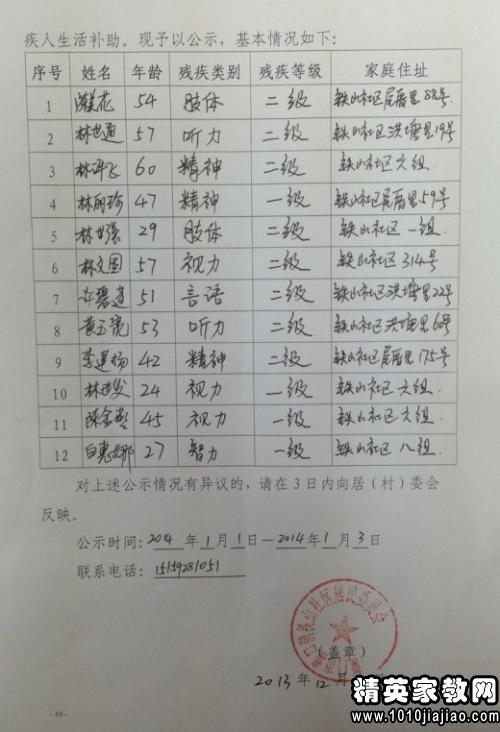 疾人生活补助。现予以公示，基本情况如下：
序号 姓名 年龄 残疾类别 残疾等级 家庭住址
1 花 54 肢体 二级 铁山社区尾厝里88号
2 林世通 57 听力 二级 铁山社区洪塘里19号
3 林 60 精神 二级 铁山社区六组
4 林丽珍 47 精神 一级 铁山社区尾厝里59号
5 林世强 29 肢体 二级 铁山社区一组
6 林文国 57 视力 二级 铁山社区314号
7 51 言语 二级 铁山社区洪塘里22号
8 黄玉 53 听力 二级 铁山社区洪塘里60号
9 李建杨 42 精神 二级 铁山社区尾厝里175号
10 林 24 视力 一级 铁山社区六组
11 陈金 45 视力 一级 铁山社区六组
12 白惠娜 27 智力 一级 铁山社区八组
对上述公示情况有异议的，请在3日内向居（村）委会
反映。
公示时间：2014年1月1日—2014年1月3日
联系电话：15159281051
铁山社区居民委员会
（盖章）
2013年12月
精英家教网
www.1010jiajiao.com